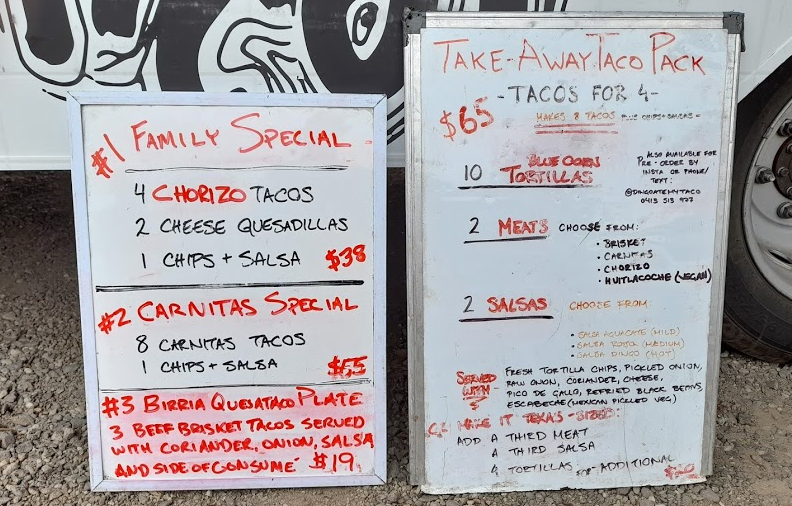 #1 FAMILY SPECIAL
4 CHORIZO TACOS
2 CHEESE QUESADILLAS
1 CHIPS + SALSA $38
#2 CARNITAS SPECIAL
8 CARNITAS TACOS
1 CHIPS + SALSA $55
#3 BIRRIA QUESATACO PLATE
3 BEEF BRISKET TACOS SERVED
WITH CORIANDER, ONION, SALSA
AND SIDE OF CONSUME $19
TAKE-AWAY TACO PACK
-TACOS FOR 4-
$65
MAKES 8 TACOS PLUS CHIPS+SALSAS
10 BLUE CORN
TORTILLAS
ALSO AVAILABLE FOR
PRE-ORDER BY
INSTA OR PHONE/
TEXT:
@DINGOATEMYTACO
0413 513 977
2 MEATS CHOOSE FROM:
• BRISKET
• CARNITAS
• CHORIZO
• HUITLACOCHE (VEGAN)
2 SALSAS CHOOSE FROM
• SALSA AGUACATE (MILD)
• SALSA ROJA (MEDIUM)
• SALSA DINGO (HOT)
SERVED
WITH
FRESH TORTILLA CHIPS, PICKLED ONION,
RAW ONION, CORIANDER, CHEESE,
PICO DE GALLO, REFRIED BLACK BEANS,
ESCABECHE (MEXICAN PICKLED VEG)
MAKE IT TEXAS-SIZED:
ADD A THIRD MEAT
A THIRD SALSA
4 TORTILLAS FOR ADDITIONAL